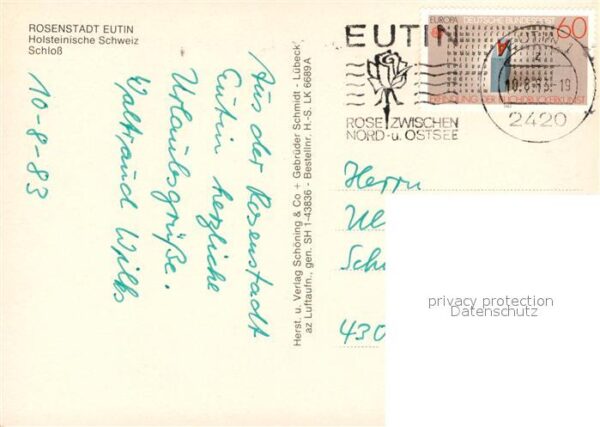 ROSENSTADT EUTIN
Holsteinische Schweiz
Schloß
Aus der Rosenstadt
Eutin herzliche
Urlaubsgrüße.
Waltraud Wilks
10-8-83
Herst. u. Verlag Schöning & Co + Gebrüder Schmidt - Lübeck
az Luftaufn., gen. SH 1-43836 - Bestellnr. H.-S. LK 6689 A
EUTIN
ROSE ZWISCHEN
NORD- u. OSTSEE
EUROPA DEUTSCHE BUNDESPOST 60
10.8.83-19
2420
Herrn
430
privacy protection
Datenschutz